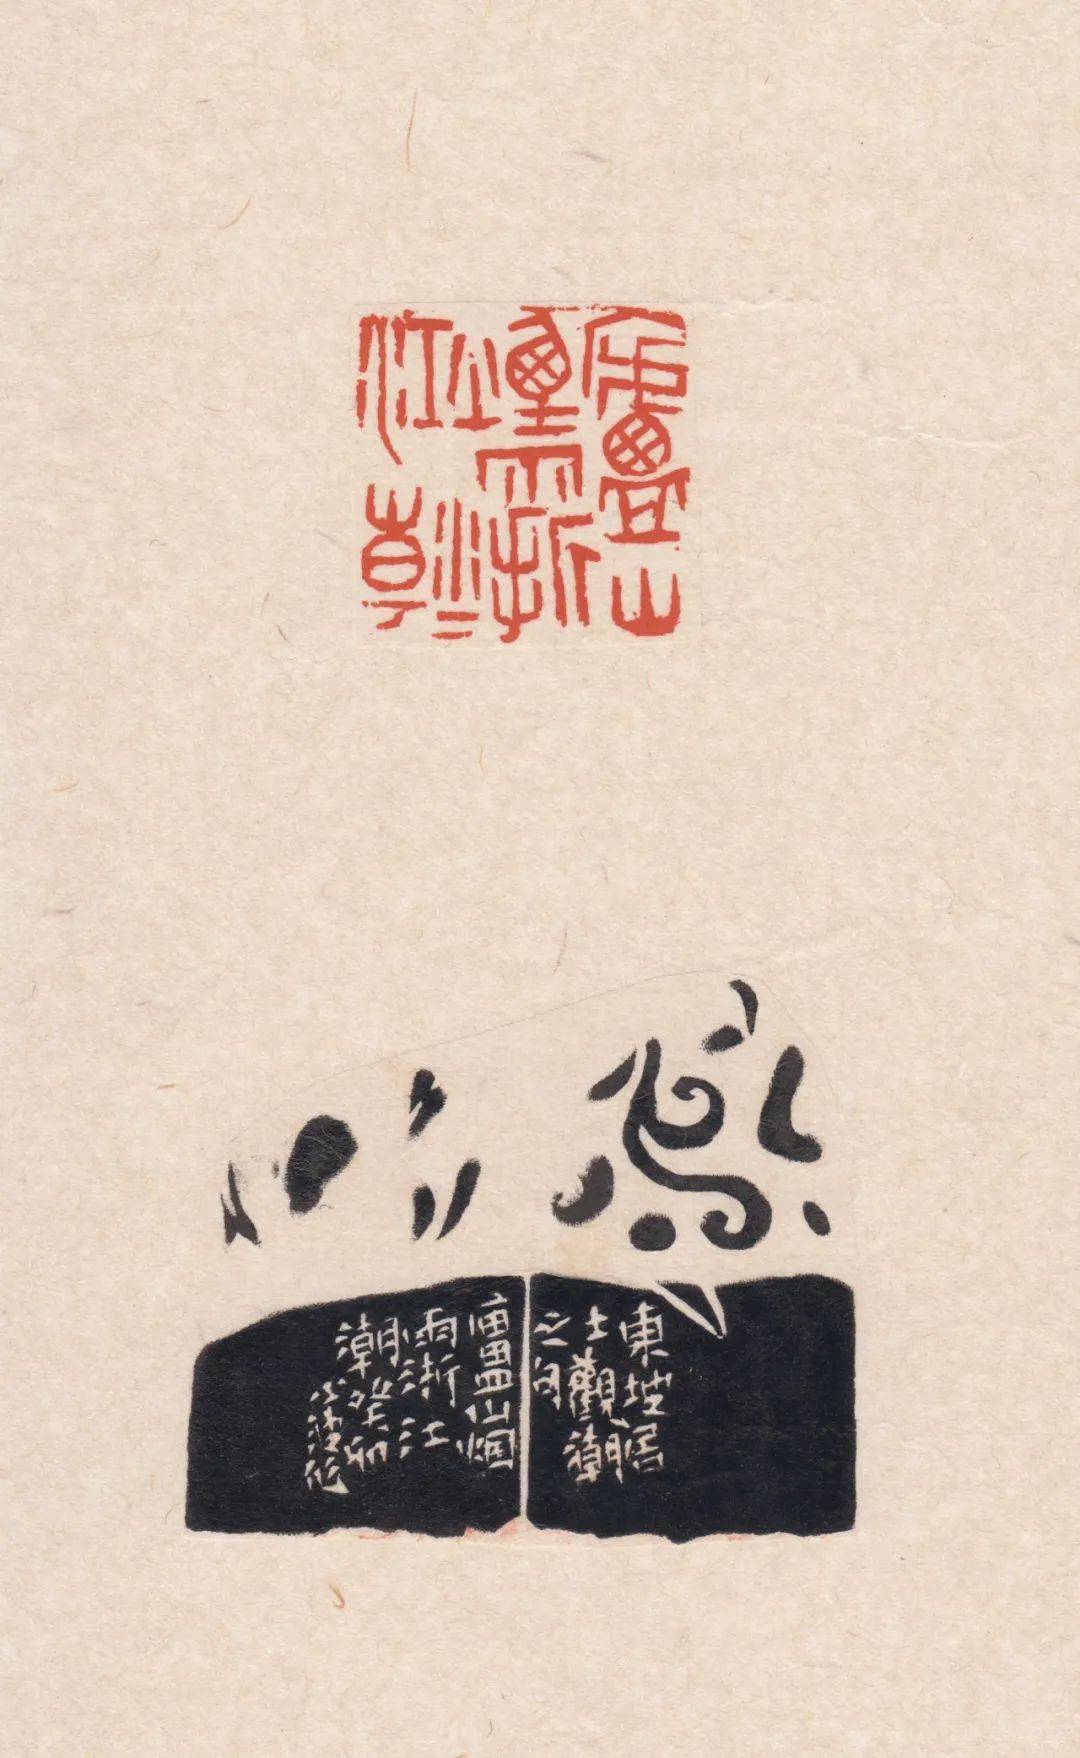 廬山
煙雨浙
江潮
東坡居
士觀潮
之句
廬山烟
雨浙江
潮